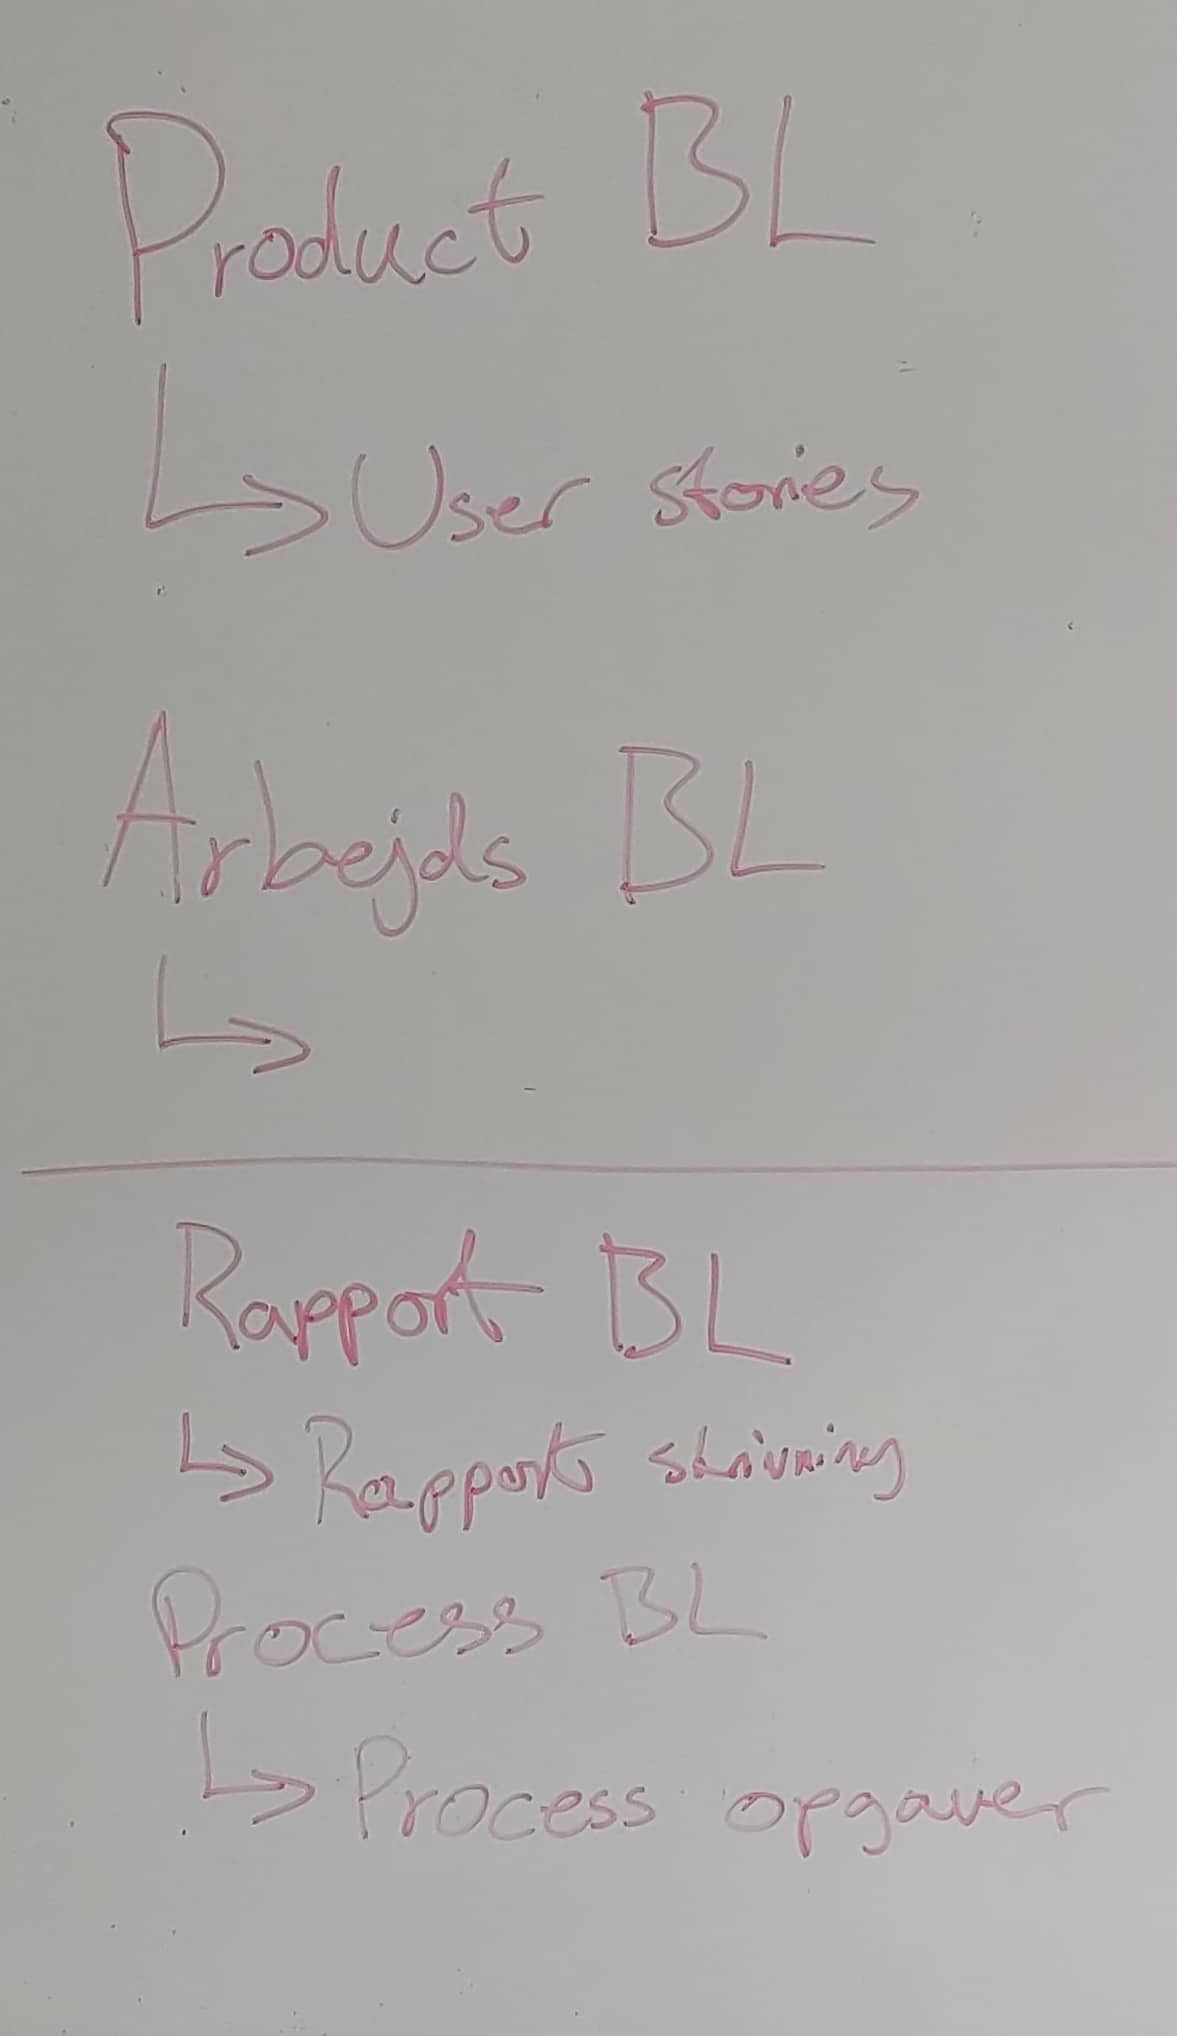 Product BL
↳ User stories
Arbejds BL
↳
Rapport BL
↳ Rapport skrivning
Process BL
↳ Process opgaver